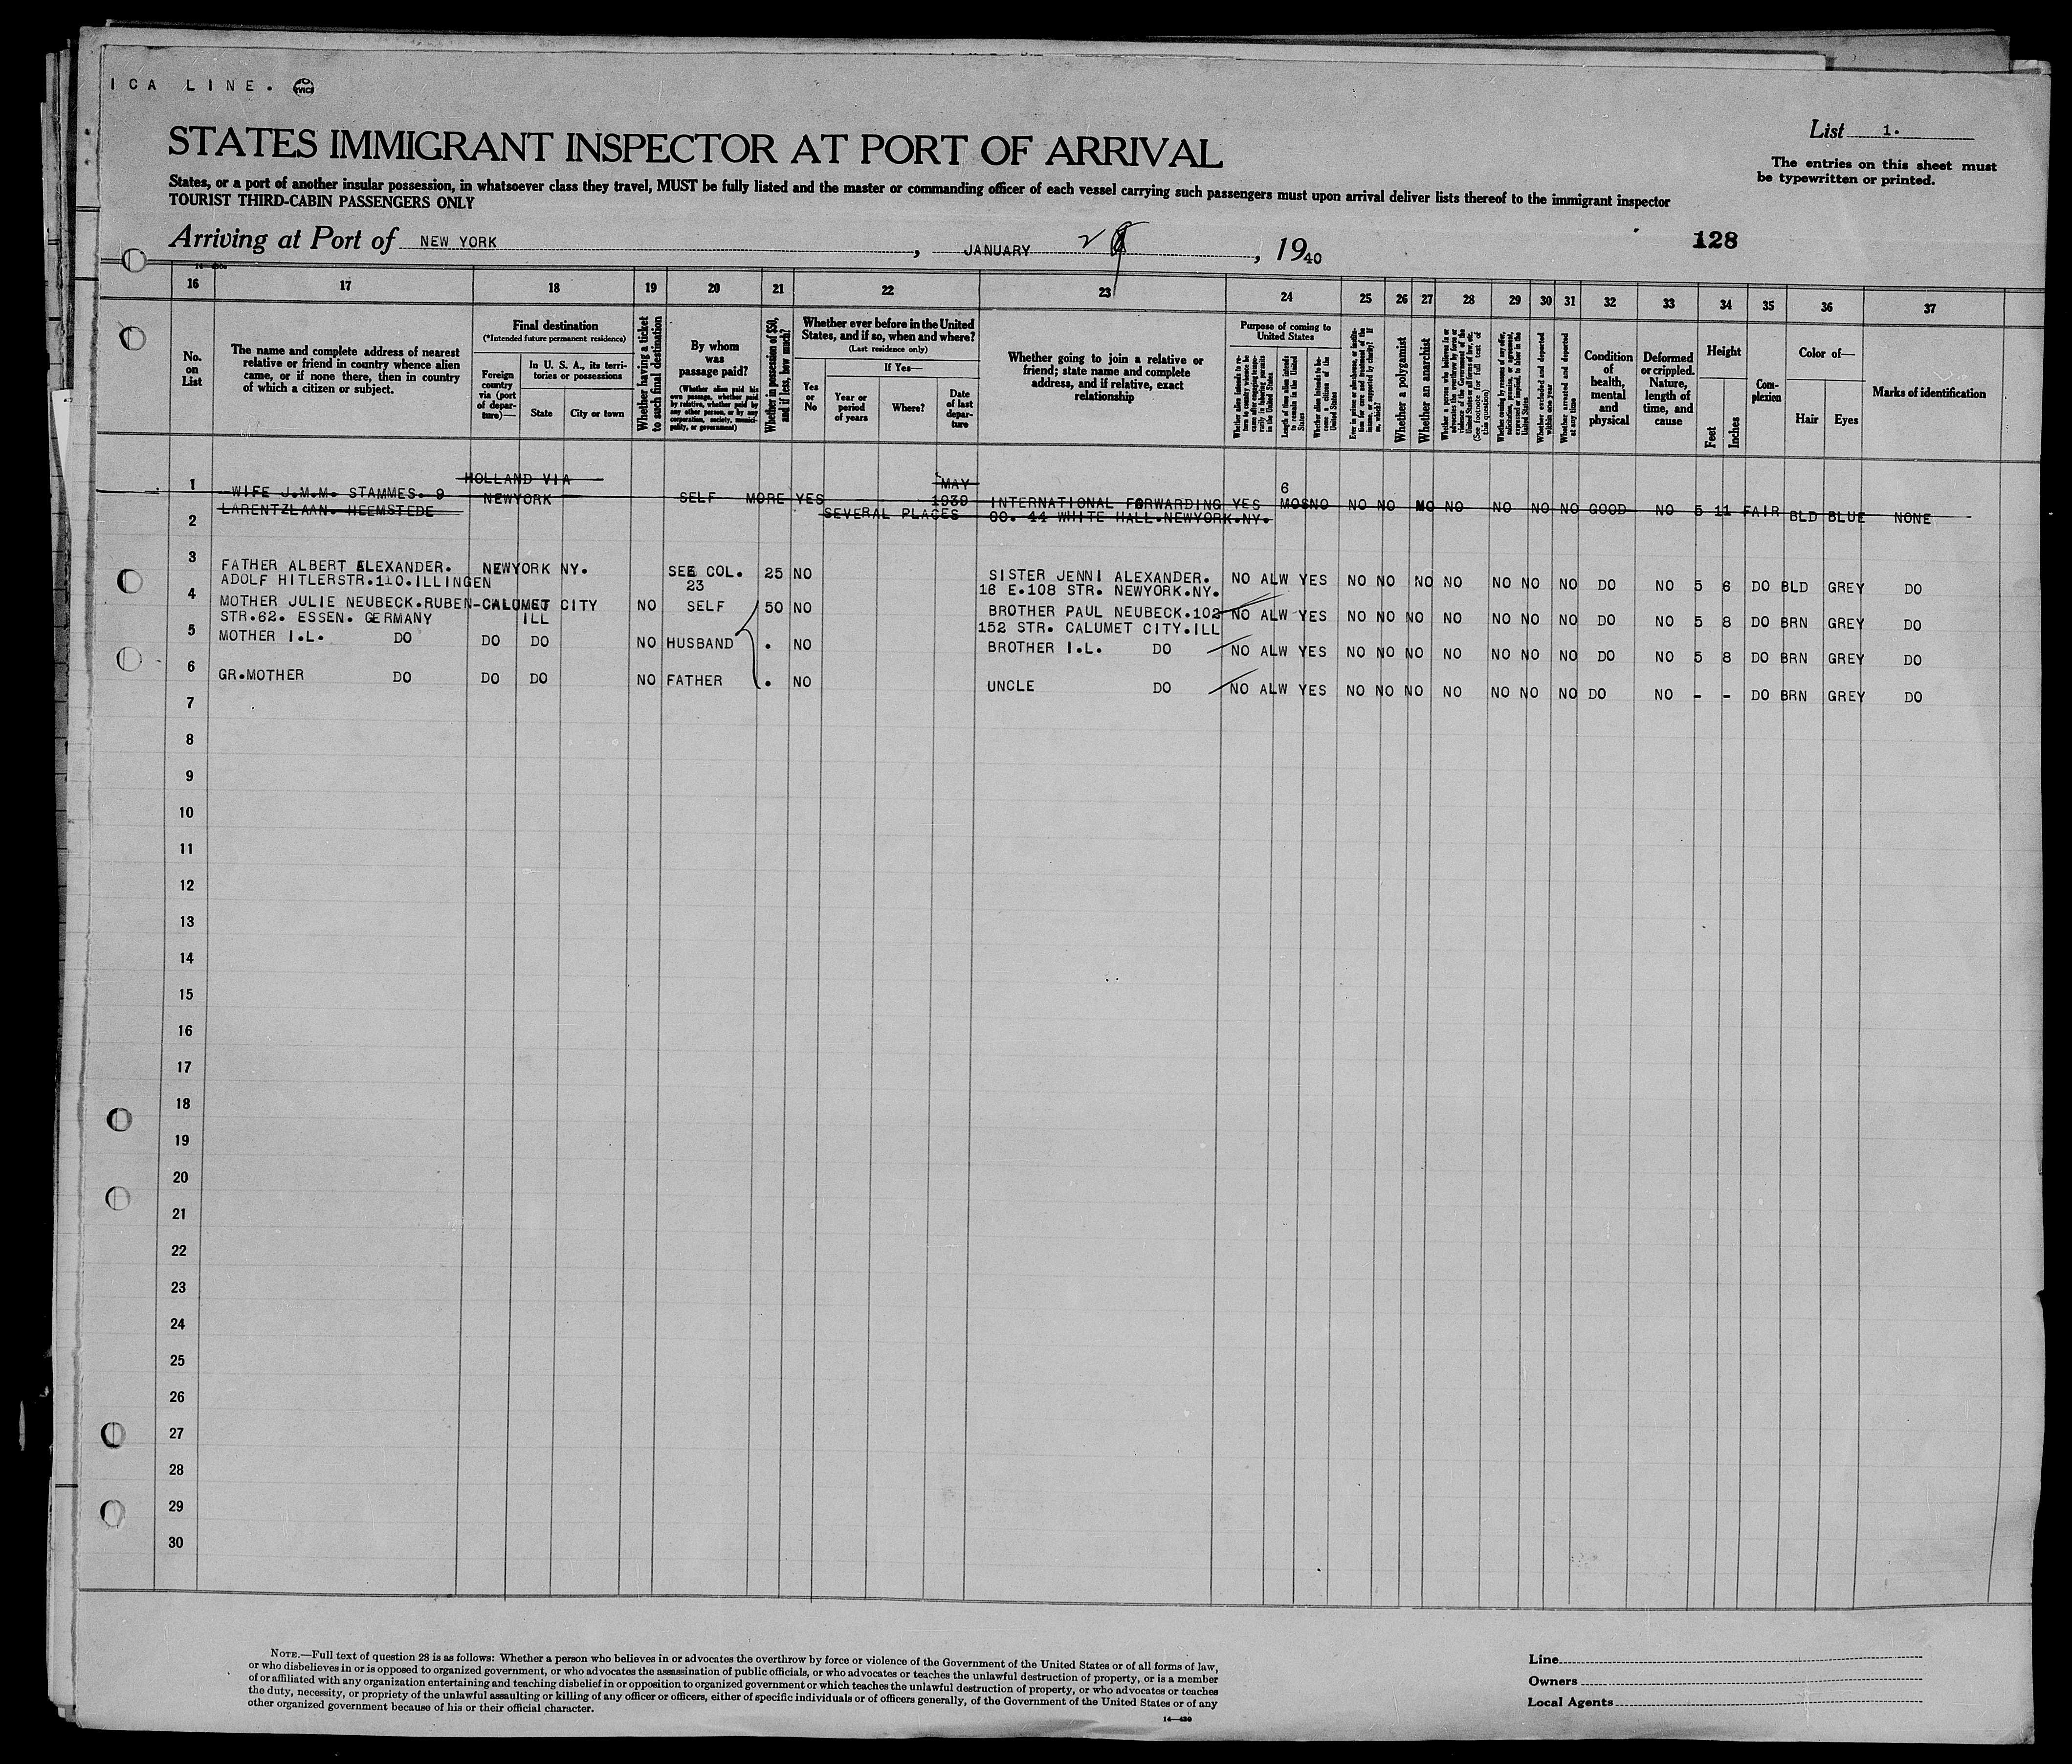 ICA LINE.
List 1.
STATES IMMIGRANT INSPECTOR AT PORT OF ARRIVAL
The entries on this sheet must
be typewritten or printed.
States, or a port of another insular possession, in whatsoever class they travel, MUST be fully listed and the master or commanding officer of each vessel carrying such passengers must upon arrival deliver lists thereof to the immigrant inspector
TOURIST THIRD-CABIN PASSENGERS ONLY
Arriving at Port of NEW YORK, JANUARY 2, 1940
128
16 17 18 19 20 21 22 23 24 25 26 27 28 29 30 31 32 33 34 35 36 37
No.
on
List
The name and complete address of nearest
relative or friend in country whence alien
came, or if none there, then in country
of which a citizen or subject.
Final destination
(*Intended future permanent residence)
Foreign
country
via (port
of depar-
ture)—
In U. S. A., its terri-
tories or possessions
State
City or town
Whether having a ticket
to such final destination
By whom
was
passage paid?
(Whether alien paid his
own passage, whether paid
by relative, whether paid by
any other person, or by any
corporation, society, munici-
pality, or government)
Whether in possession of $50,
and if less, how much?
Whether ever before in the United
States, and if so, when and where?
(Last residence only)
Yes
or
No
If Yes—
Year or
period
of years
Where?
Date
of last
depar-
ture
Whether going to join a relative or
friend; state name and complete
address, and if relative, exact
relationship
Purpose of coming to
United States
Length of time alien intends
to remain in the United
States
Whether alien intends to be-
come a citizen of the
United States
Whether a polygamist
Whether an anarchist
(See footnote for full text of
this question)
Whether excluded and deported
within one year
Whether arrested and deported
at any time
Condition
of
health,
mental
and
physical
Deformed
or crippled.
Nature,
length of
time, and
cause
Height
Feet
Inches
Com-
plexion
Color of—
Hair
Eyes
Marks of identification
1 WIFE J.M.M. STAMMES. 9 HOLLAND VIA NEWYORK SELF MORE YES MAY 1939 INTERNATIONAL FORWARDING YES 6 MOS NO NO NO NO NO NO NO NO GOOD NO 5 11 FAIR BLD BLUE NONE
2 LARENTZLAAN. HEEMSTEDE SEVERAL PLACES CO. 44 WHITE HALL.NEWYORK.NY.
3 FATHER ALBERT ALEXANDER. NEWYORK NY. SEE COL. 25 NO SISTER JENNI ALEXANDER. NO ALW YES NO NO NO NO NO NO NO DO NO 5 6 DO BLD GREY DO
ADOLF HITLERSTR.110.ILLINGEN 23 16 E.108 STR. NEWYORK.NY.
4 MOTHER JULIE NEUBECK.RUBEN-CALUMET CITY NO SELF 50 NO BROTHER PAUL NEUBECK.102 NO ALW YES NO NO NO NO NO NO NO DO NO 5 8 DO BRN GREY DO
STR.62. ESSEN. GERMANY ILL 152 STR. CALUMET CITY.ILL
5 MOTHER I.L. DO DO DO NO HUSBAND . NO BROTHER I.L. DO NO ALW YES NO NO NO NO NO NO NO DO NO 5 8 DO BRN GREY DO
6 GR.MOTHER DO DO DO NO FATHER . NO UNCLE DO NO ALW YES NO NO NO NO NO NO NO DO NO - - DO BRN GREY DO
7
8
9
10
11
12
13
14
15
16
17
18
19
20
21
22
23
24
25
26
27
28
29
30
NOTE.—Full text of question 28 is as follows: Whether a person who believes in or advocates the overthrow by force or violence of the Government of the United States or of all forms of law,
or who disbelieves in or is opposed to organized government, or who advocates the assassination of public officials, or who advocates or teaches the unlawful destruction of property, or is a member
of or affiliated with any organization entertaining and teaching disbelief in or opposition to organized government or which teaches the unlawful destruction of property, or who advocates or teaches
the duty, necessity, or propriety of the unlawful assaulting or killing of any officer or officers, either of specific individuals or of officers generally, of the Government of the United States or of any
other organized government because of his or their official character.
14—430
Line
Owners
Local Agents